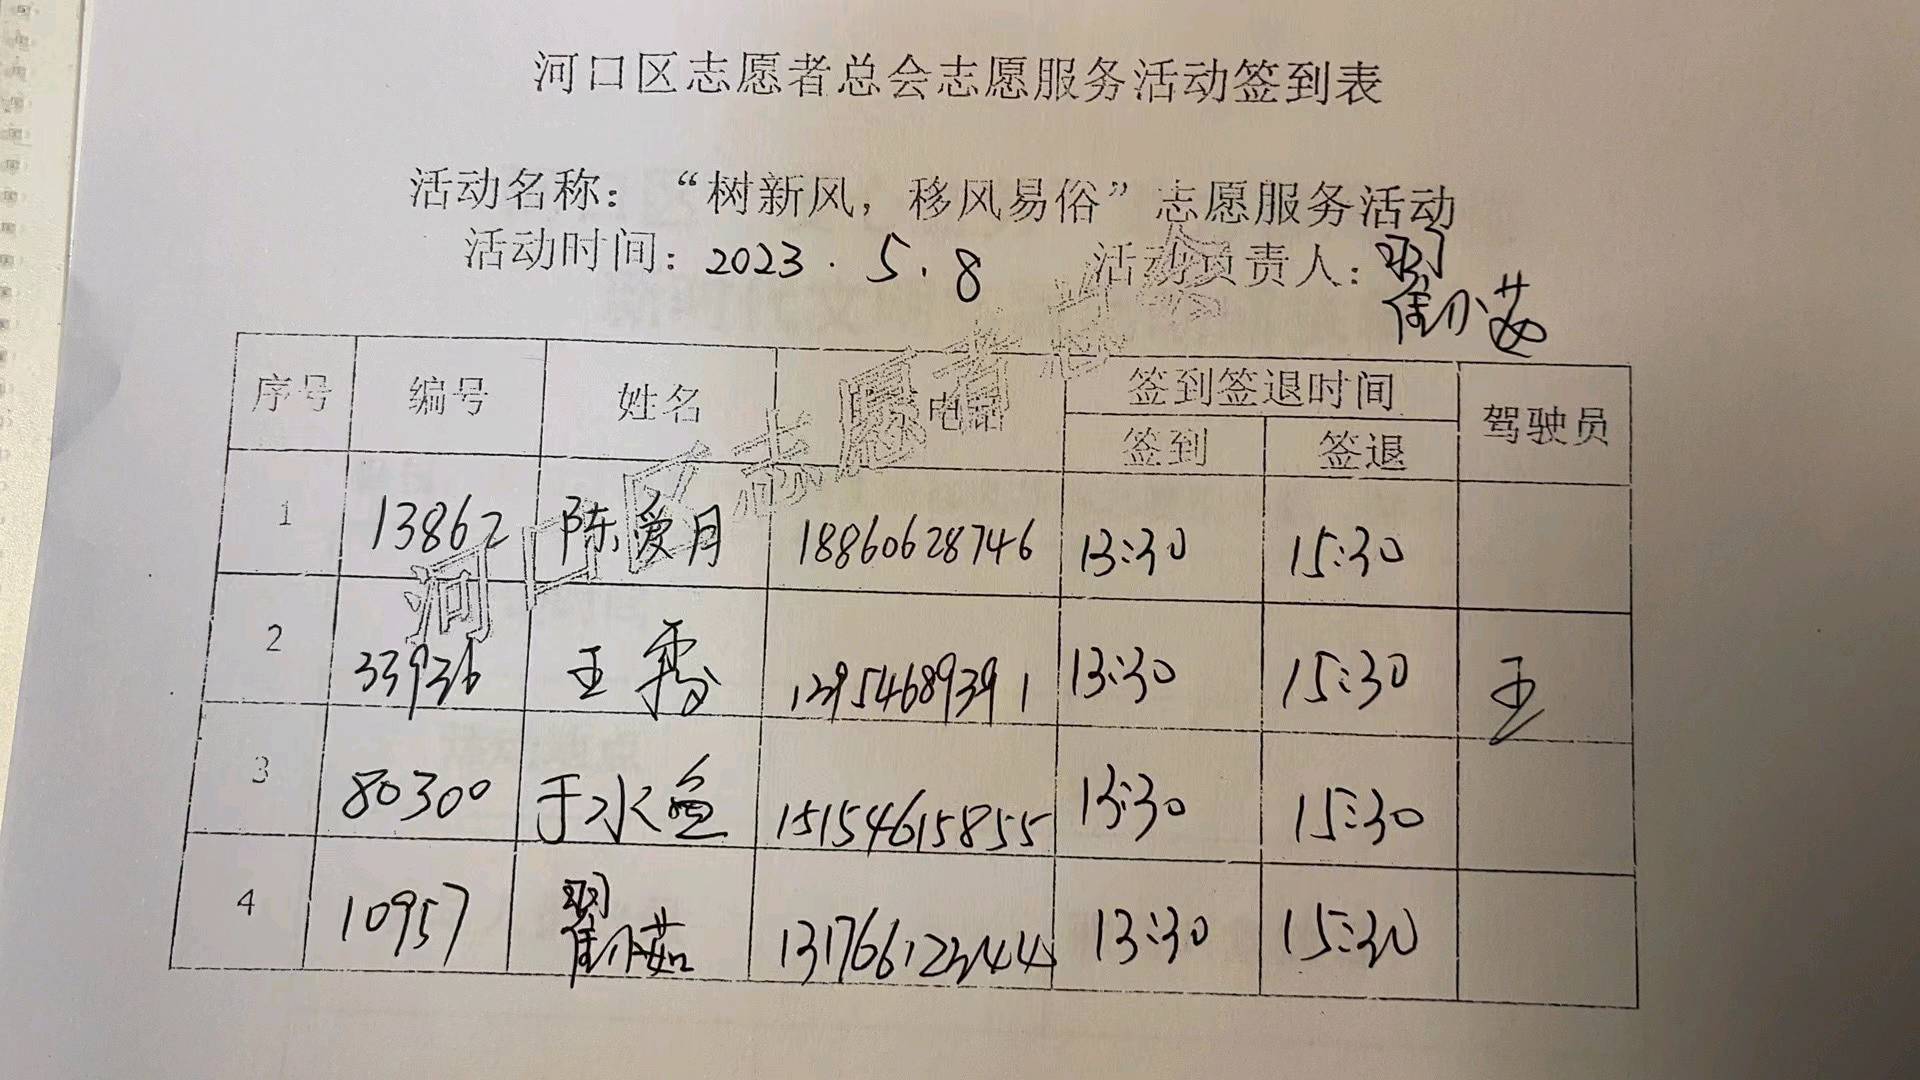 河口区志愿者总会志愿服务活动签到表
活动名称：“树新风，移风易俗”志愿服务活动
活动时间：2023.5.8 活动负责人：翟小茹
序号 编号 姓名 电话 签到签退时间 驾驶员
签到 签退
1 13862 陈爱月 18860628746 13:30 15:30
2 33936 王霞 13954689391 13:30 15:30 王
3 80300 于水鱼 15154615855 13:30 15:30
4 10957 翟小茹 13:30 15:30
河口区志愿者总会